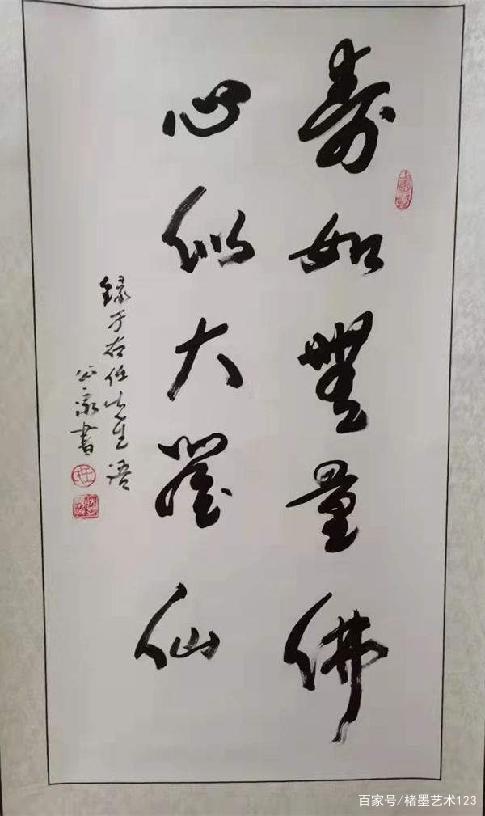 寿如無量佛
心似大罗仙
録于右任先生语
公豪書
百家号/楮墨艺术123